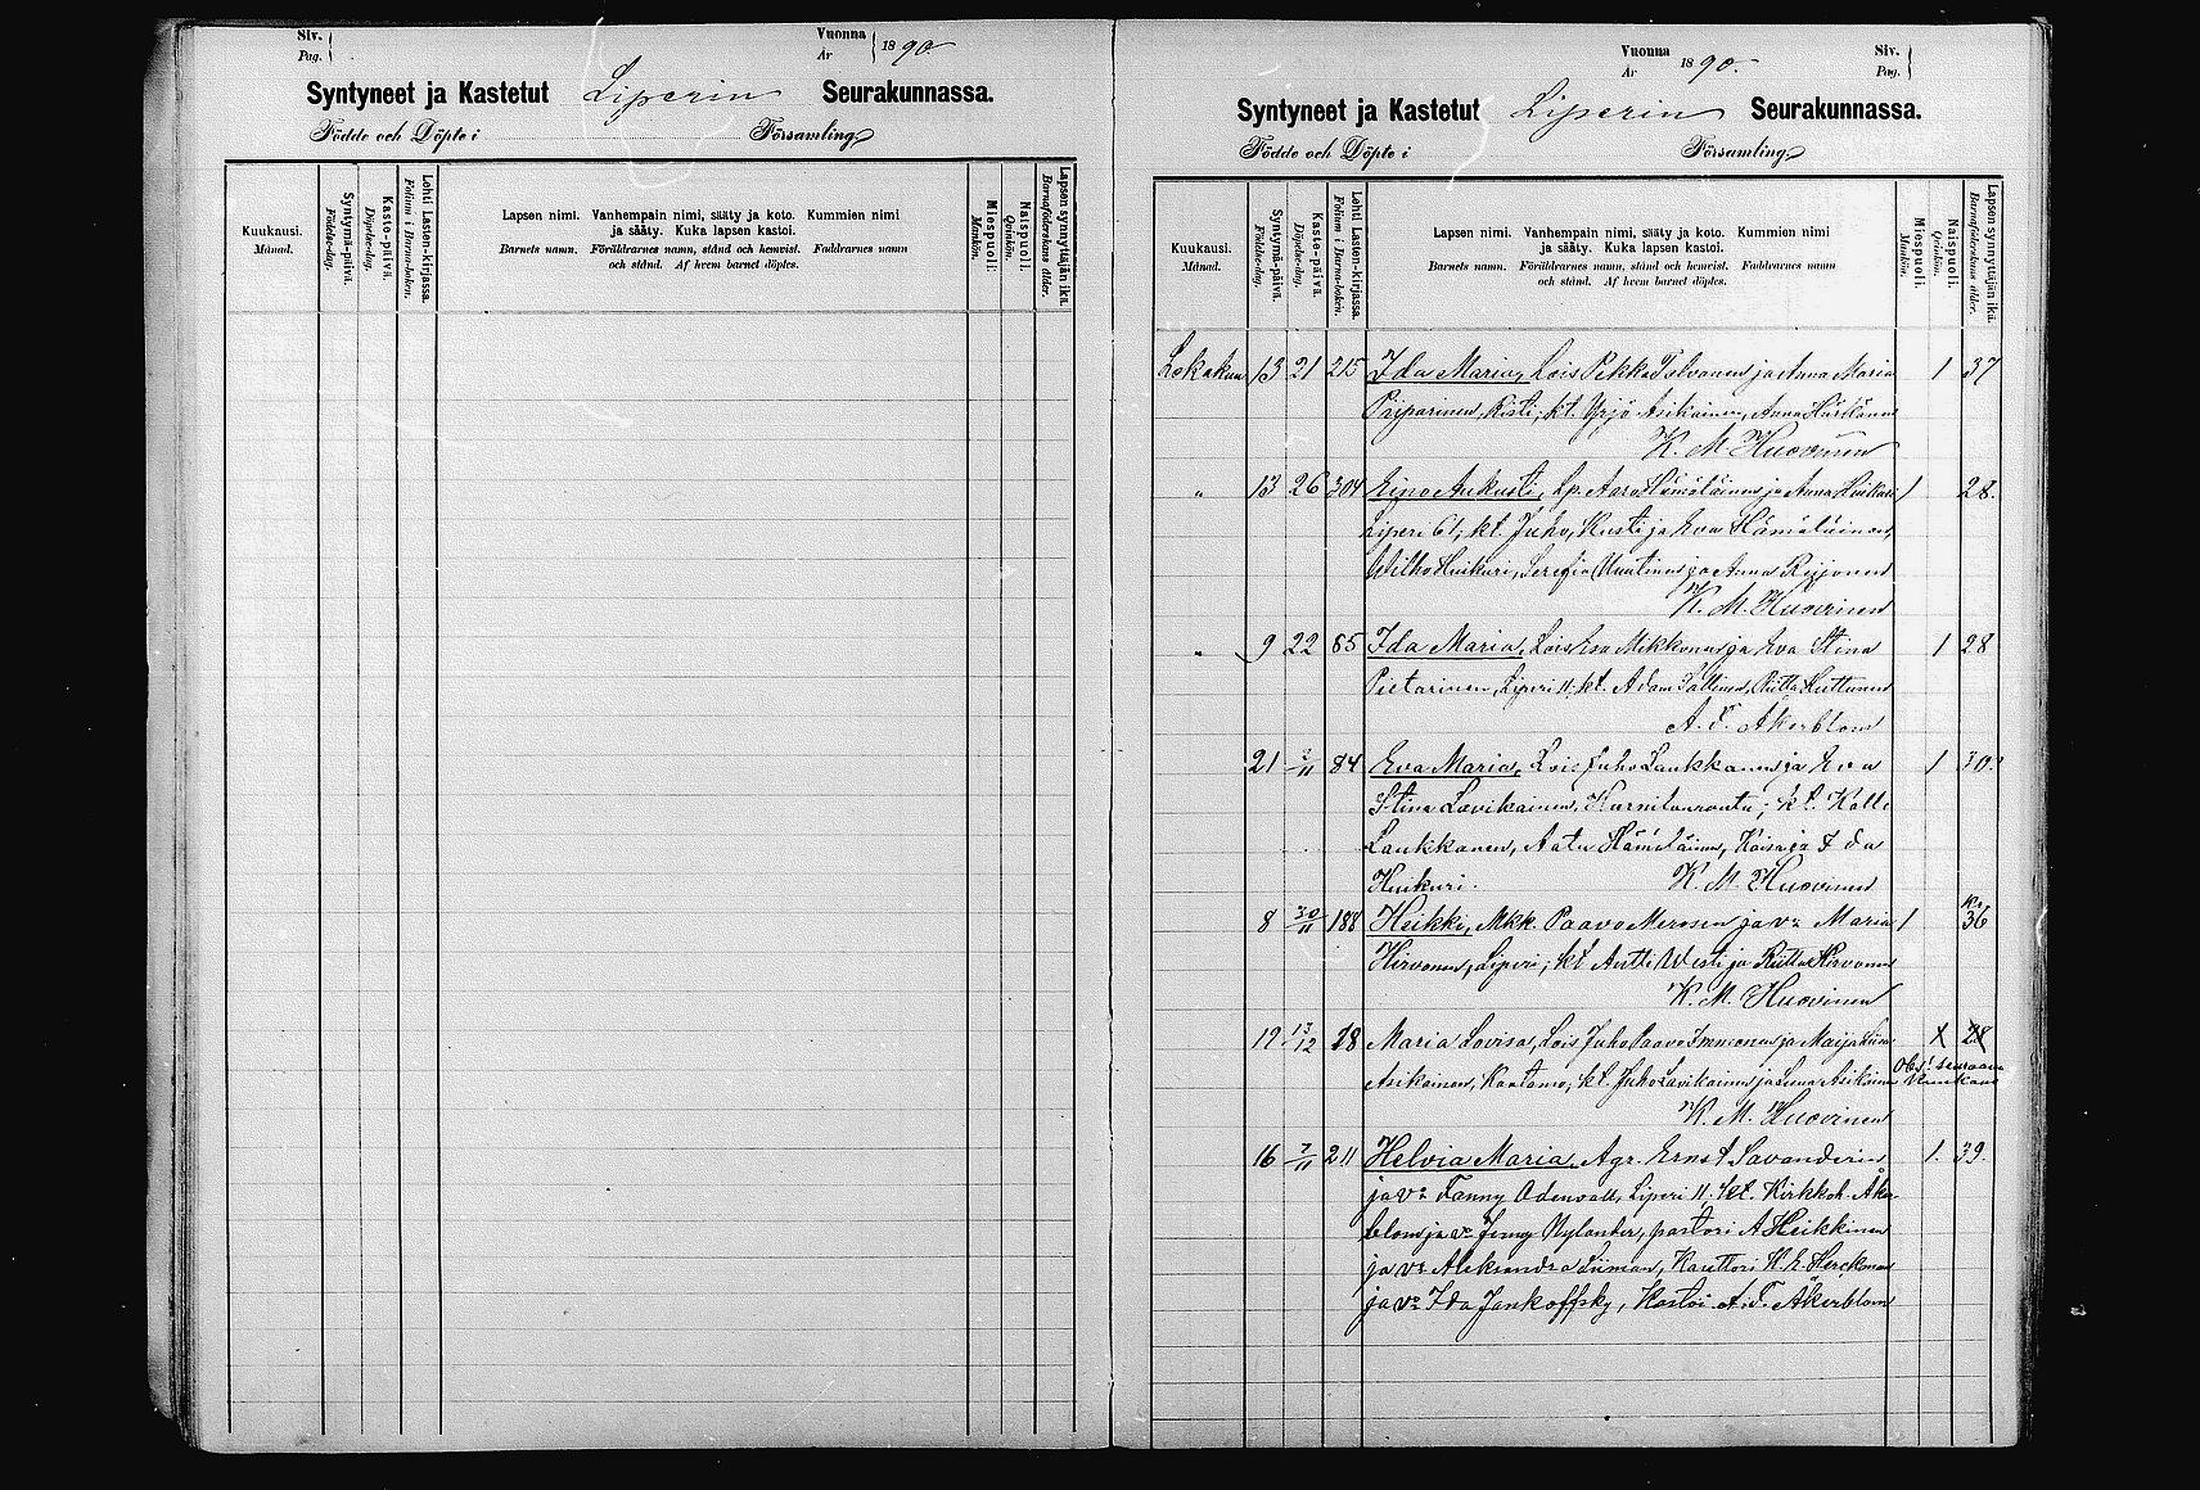 Siv.
Pag.
Vuonna
År
1890.
Syntyneet ja Kastetut Liperin Seurakunnassa.
Födde och Döpte i Församling
Kuukausi.
Månad.
Syntymä-päivä.
Födelse-dag.
Kaste-päivä.
Döpelse-dag.
Lehti Lasten-kirjassa.
Folium i Barna-boken.
Lapsen nimi. Vanhempain nimi, sääty ja koto. Kummien nimi
ja sääty. Kuka lapsen kastoi.
Barnets namn. Föräldrarnes namn, stånd och hemvist. Faddrarnes namn
och stånd. Af hvem barnet döptes.
Miespuoli.
Mankön.
Naispuoli.
Qvinkön.
Lapsen synnyttäjän ikä.
Barnaföderskans ålder.
Vuonna
År
1890.
Siv.
Pag.
Syntyneet ja Kastetut Liperin Seurakunnassa.
Födde och Döpte i Församling
Kuukausi.
Månad.
Syntymä-päivä.
Födelse-dag.
Kaste-päivä.
Döpelse-dag.
Lehti Lasten-kirjassa.
Folium i Barna-boken.
Lapsen nimi. Vanhempain nimi, sääty ja koto. Kummien nimi
ja sääty. Kuka lapsen kastoi.
Barnets namn. Föräldrarnes namn, stånd och hemvist. Faddrarnes namn
och stånd. Af hvem barnet döptes.
Miespuoli.
Mankön.
Naispuoli.
Qvinkön.
Lapsen synnyttäjän ikä.
Barnaföderskans ålder.
Lokakuu 13 21 215 Ida Maria, Lois Pekka ja Anna Maria 1 37
Risti; kt. Yrjö Asikainen, Anna Härkönen
K. M. Huovinen
" 13 26 304 Eino Aukusti, Lp. Aaro Hämäläinen ja Anna Huikuri 1 28.
Liperi 61; kt. Juho, Kusti ja Eva Hämäläinen,
Wilho Huikuri, Serefia Muutinen ja Anna Reijonen
K. M. Huovinen
" 9 22 65 Ida Maria, Lois Esa Mikkonen ja Eva Stina 1 28
Pietarinen, Liperi 11; kt. Adam Sallinen, Riitta Huttunen
A. F. Akerblom
21 2/11 84 Eva Maria, Lois Juho Laukkanen ja Eva 1 30.
Stina Lavikainen, kt. Kalle
Laukkanen, Aatu Hämäläinen, Kaisa ja Ida
Huikuri. K. M. Huovinen
8 30/11 188 Heikki, Mkk. Paavo Merosen ja vo Maria 1 36
Hirvonen, Liperi; kt Antti Westi ja Riitta Hirvonen
K. M. Huovinen
19 13/12 28 Maria Lovisa, Lois Juho Paavo Immonen ja Maija Liisa 1 28
Asikainen, Kaatamo; kt. Juho Lavikainen ja Asikainen Obs! seuraava
kuukaus
K. M. Huovinen
16 7/11 211 Helvia Maria, Agr. Ernst Savanderin 1. 39.
ja vo Fanny Adenvall, Liperi 11; kt. Kirkkoh. Åker-
blom ja vo Jenny Nylander, pastori A Heikkinen
ja vo Aleksandra Siiman, Kanttori K. E. Herckman
ja vo Ida Jankoffsky, Kastoi A. F. Åkerblom